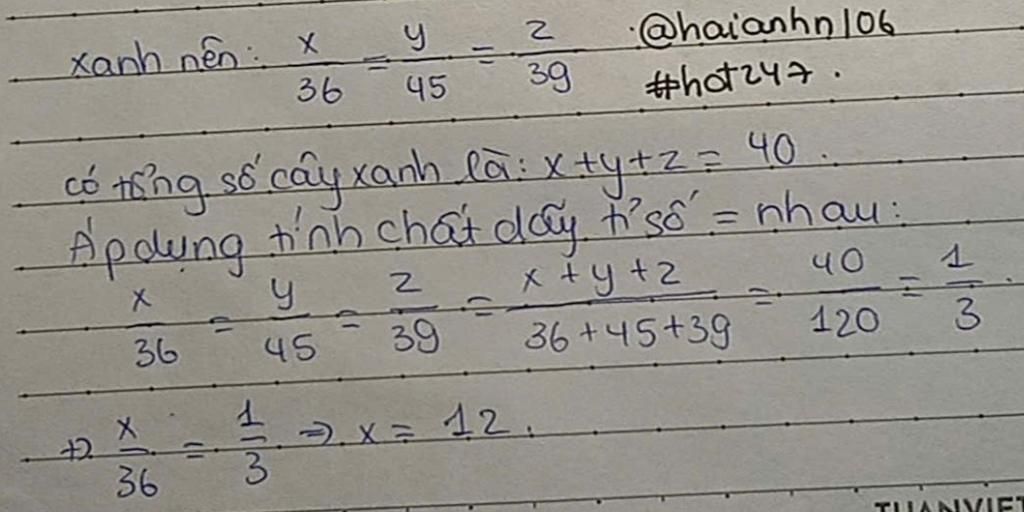 xanh nên: x/36 = y/45 = z/39 @haianhn106
#hot247.
có tổng số cây xanh là: x+y+z = 40.
Áp dụng tính chất dãy tỉ số = nhau:
x/36 = y/45 = z/39 = x+y+z/36+45+39 = 40/120 = 1/3.
+) x/36 = 1/3 => x = 12.
TUANVIET